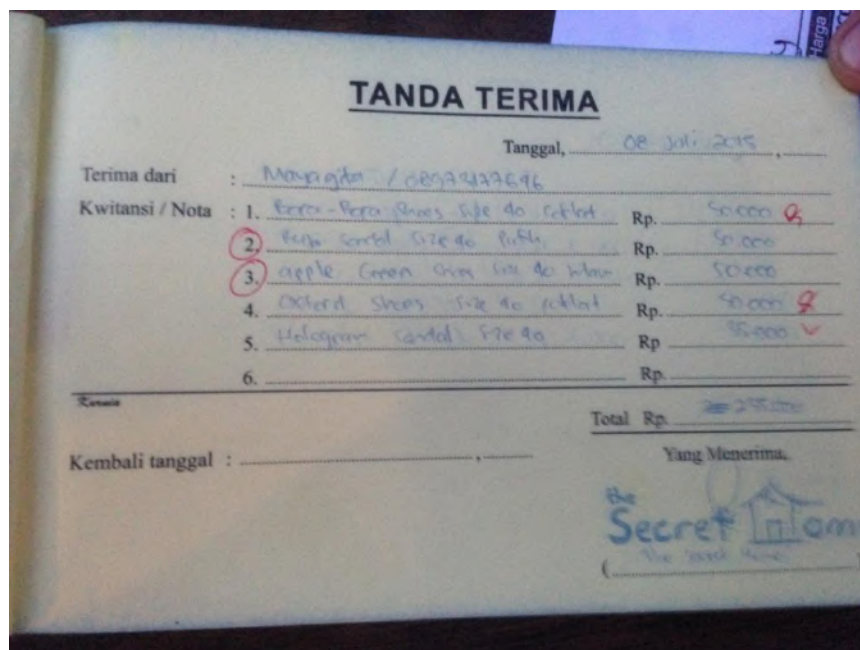 Harga
TANDA TERIMA
Tanggal, 08 Juli 2015 ,
Terima dari : Mayagita / 089
Kwitansi / Nota : 1. Bora-Bora Shoes Size 40 coklat Rp. 50.000
2. Sandal Size 40 Putih Rp. 50.000
3. apple Green Shoes Size 40 Rp. 50.000
4. Oxford Shoes Size 40 coklat Rp. 50.000
5. Hologram Sandal Size 40 Rp 35.000
6. Rp.
Total Rp.
Kembali tanggal : ,
Yang Menerima,
the
Secret Hom
The Secret Home
(